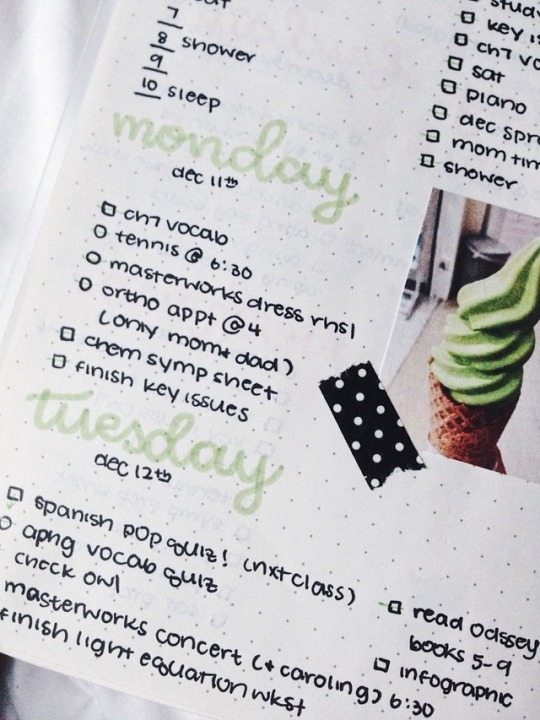 7
8 shower
9
10 sleep
monday
dec 11th
ch7 vocab
tennis @ 6:30
masterworks dress rhsl
ortho appt @ 4
(only mom + dad)
chem symp sheet
finish key issues
tuesday
dec 12th
spanish pop quiz! (nxt class)
aphg vocab quiz
check owl
masterworks concert (+ caroling) 6:30
finish light equation wkst
key
ch7
sat
piano
dec
mom
shower
read odssey
books 5-9
infographic